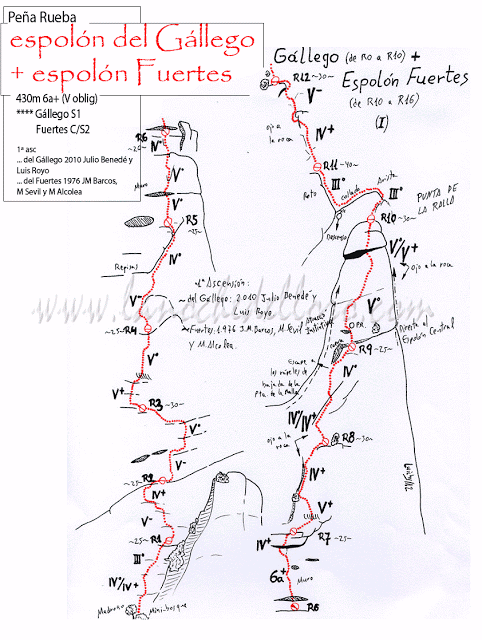 Peña Rueba
espolón del Gállego
+ espolón Fuertes
430m 6a+ (V oblig)
**** Gállego S1
Fuertes C/S2
1ª asc
... del Gállego 2010 Julio Benedé y
Luis Royo
... del Fuertes 1976 JM Barcos,
M Sevil y M Alcolea
Gállego (de R0 a R10) +
Espolón Fuertes
(de R10 a R16)
(I)
R6
~20~
IV°
Muro
V°
R5
~25~
IV°
Repisas
V~
~25~ R4
V°
V+
R3 ~30~
V°
V-
~25~ R2
IV+
V-
~25~ R1
III°
IV°/IV+
Madroño
Mini-bosque
1ª Ascensión:
~ del Gállego: 2010 Julio Benedé
Luis Royo
~ Fuertes: 1976 J.M. Barcos, M. Sevil
y M. Alcolea
www.lanochedelloro.com
R12 ~30~
V-
ojo a
la roca
IV+
R11 ~40~
III°
Pato
collado
Arista
III°
R10 ~30~
PUNTA DE
LA RALLA
V°/V+
ojo a la roca
V°
Directa al
Espolón Central
R9 ~25~
Escape a
los rápeles de
bajada de la
Pta. de la Ralla
IV°
IV°/IV+
R8 ~30~
ojo a la
roca
IV+
V+
R7 ~25~
IV+
6a+
Muro
R6